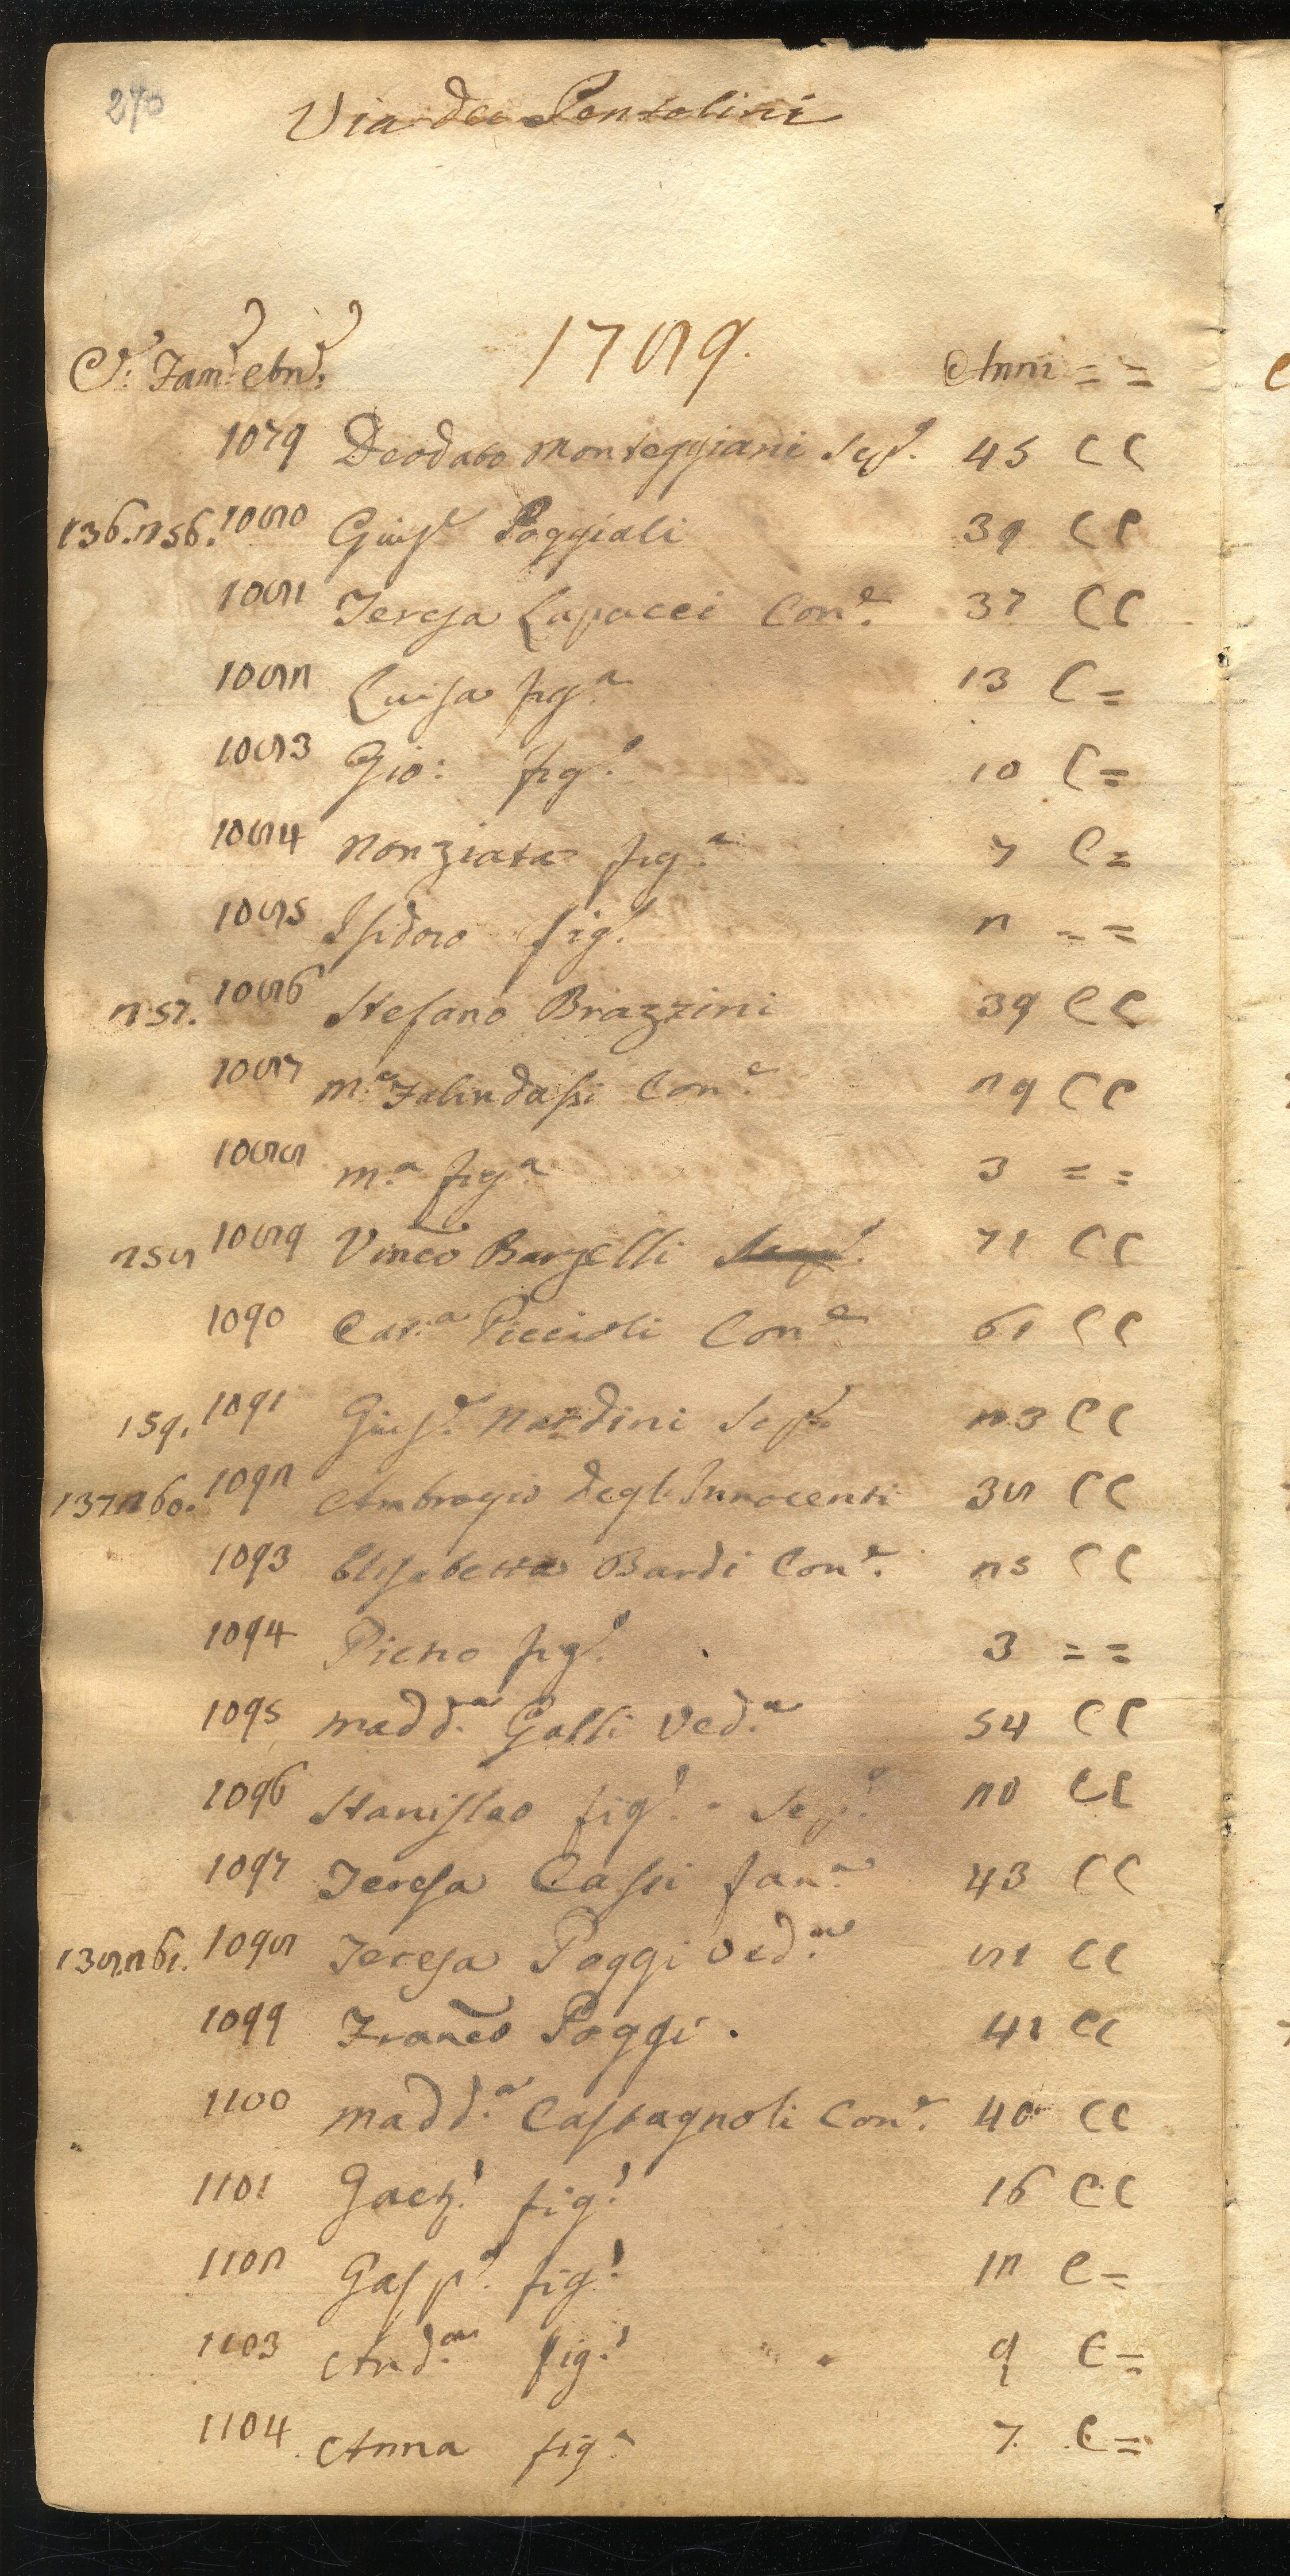 270
Via dei Pentolini
1789.
C. Fam. ebn. Anni = =
1079 Deodato Monteggiani Sep.e 45 C C
136. 256. 1080 Gius.e Poggiali 39 C C
1081 Teresa Lapacci Con.e 37 C C
1082 Luisa fig.a 13 C =
1083 Gio: fig.o 10 C =
1084 Nonziata fig.a 7 C =
1085 Isidoro fig.o 2 = =
257. 1086 Stefano Brazzini 39 C C
1087 M.a Falindassi Con.e 29 C C
1088 M.a fig.a 3 = =
258 1089 Vinc̃o Barzelli 71 C C
1090 Cat.a Piccioli Con.e 61 C C
159. 1091 Gius.e Nardini Sep.e 23 C C
137 260. 1092 Ambrogio degl'Innocenti 38 C C
1093 Elisabetta Bardi Con.e 25 C C
1094 Pietro fig.o 3 = =
1095 Madd.a Galli Ved.a 54 C C
1096 Stanislao fig.o - Sep.e 20 C C
1097 Teresa Cassi fan.a 43 C C
138. 261. 1098 Teresa Poggi Ved.a 81 C C
1099 Franc̃o Poggi. 41 C C
1100 Madd.a Castagnoli Con.e 40 C C
1101 Gaet.o fig.o 16 C C
1102 Gasp.e fig.o 12 C =
1103 And.a fig.o 9 C =
1104 Anna fig.a 7. C =